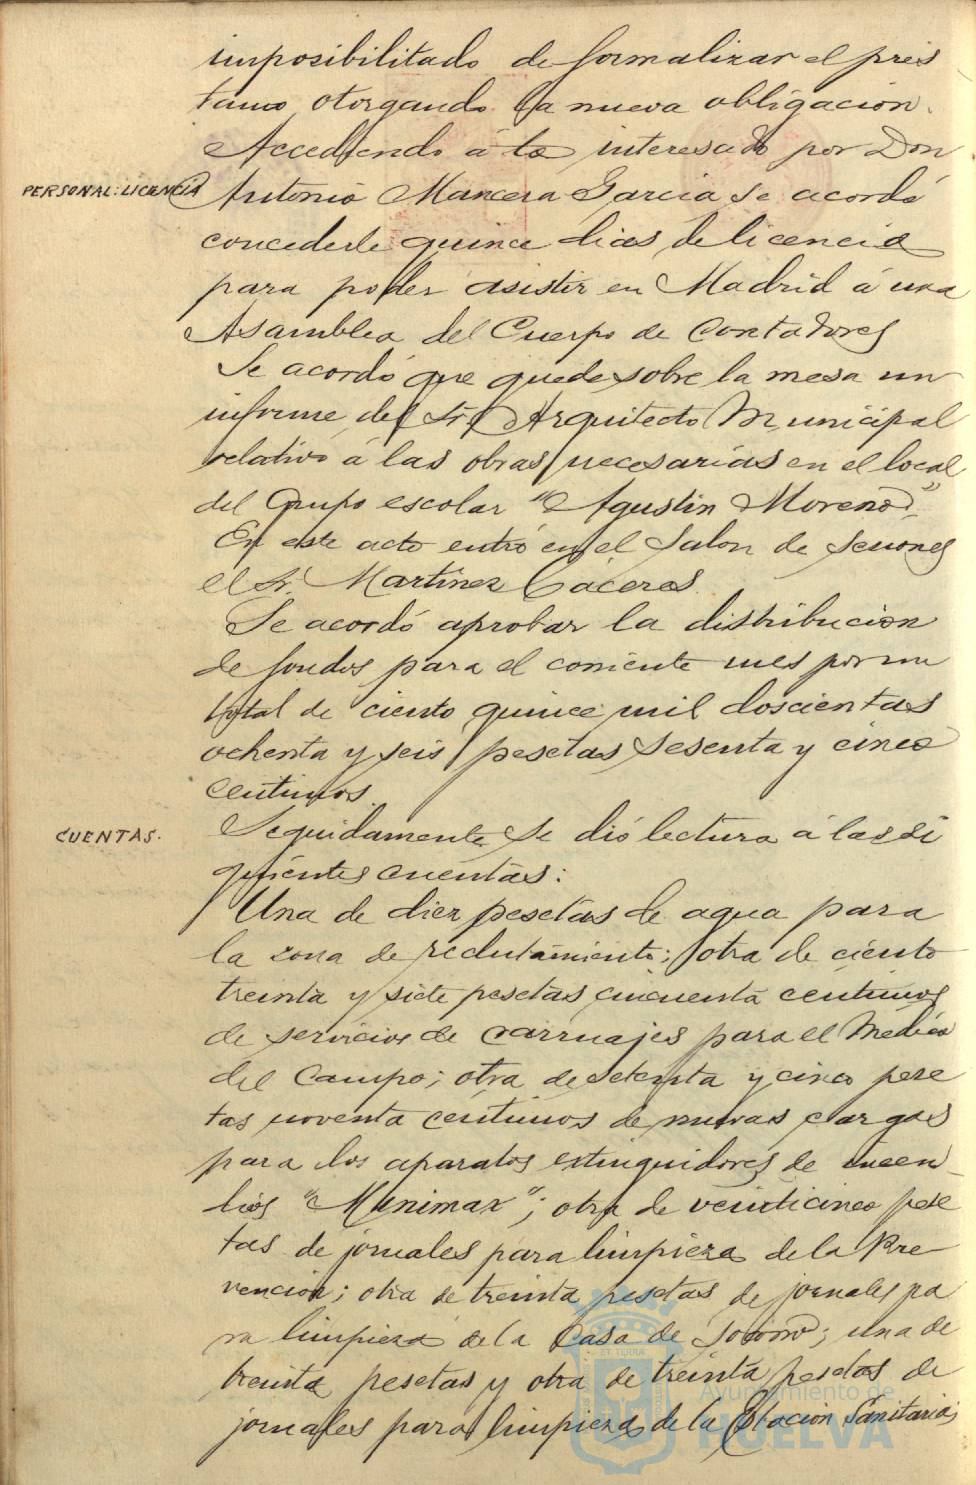 imposibilitado de formalizar el prés
tamo otorgando la nueva obligacion.
Accediendo á lo interesado por Don
PERSONAL: LICENCIA
Antonio Mancera Garcia se acordó
concederle quince dias de licencia
para poder asistir en Madrid á una
Asamblea del Cuerpo de Contadores
Se acordó que quede sobre la mesa un
informe del Sr. Arquitecto Municipal
relativo á las obras necesarias en el local
del Grupo escolar "Agustin Moreno".
En este acto entró en el Salon de sesiones
el Sr. Martinez Cáceres.
Se acordó aprobar la distribucion
de fondos para el corriente mes por un
total de ciento quince mil doscientas
ochenta y seis pesetas sesenta y cinco
centimos.
CUENTAS.
Seguidamente se dió lectura á las si
guientes cuentas:
Una de diez pesetas de agua para
la zona de reclutamiento; otra de ciento
treinta y siete pesetas cincuenta centimos
de servicios de carruajes para el Medico
del Campo; otra de setenta y cinco pese
tas noventa centimos de nuevas cargas
para los aparatos extinguidores de incen_
dios "Minimax"; otra de veinticinco pese
tas de jornales para limpieza de la Pre-
vencion; otra de treinta pesetas de jornales pa
ra limpieza de la Casa de Socorro; una de
treinta pesetas y otra de treinta pesetas de
jornales para limpieza de la Estacion Sanitaria;
Ayuntamiento de
HUELVA